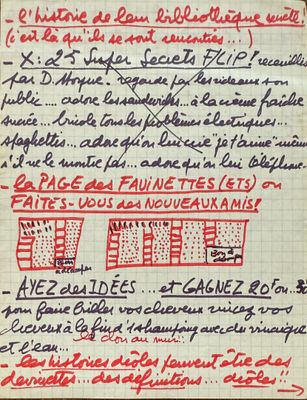 - l'histoire de leur bibliothèque secrète!
(c'est là qu'ils se sont rencontrés...!)
- X: 25 Super Secrets FLIP! recueillis
par D. Hogue - regarde par les rideaux son
public .... adore les sandwiches... à la crème fraîche
sucrée... bricole tous les problèmes électriques...
spaghettis... adore qu'on lui crie "je t'aime" même
s'il ne le montre pas... adore qu'on lui téléphone-
- la PAGE des FAUINETTES (ETS) ou
FAITES-VOUS des NOUVEAUX AMIS!
Bon
à découper
Bon à
- AYEZ des IDÉES ... et GAGNEZ 20F ou..
pour faire briller vos cheveux rincez vos
cheveux à la fin d'1 shampoing avec du vinaigre
et l'eau...
le clou au mur..
- les histoires drôles peuvent être des
devinettes... des définitions... drôles!!